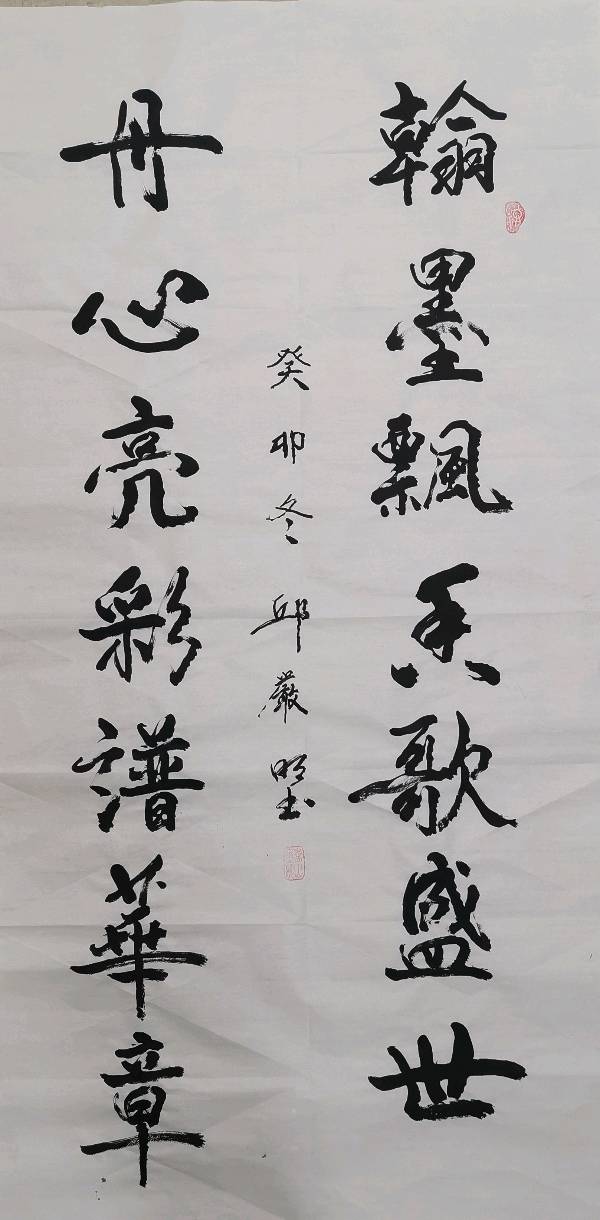 翰墨飄香歌盛世
丹心亮彩譜華章
癸卯冬邱嚴明书